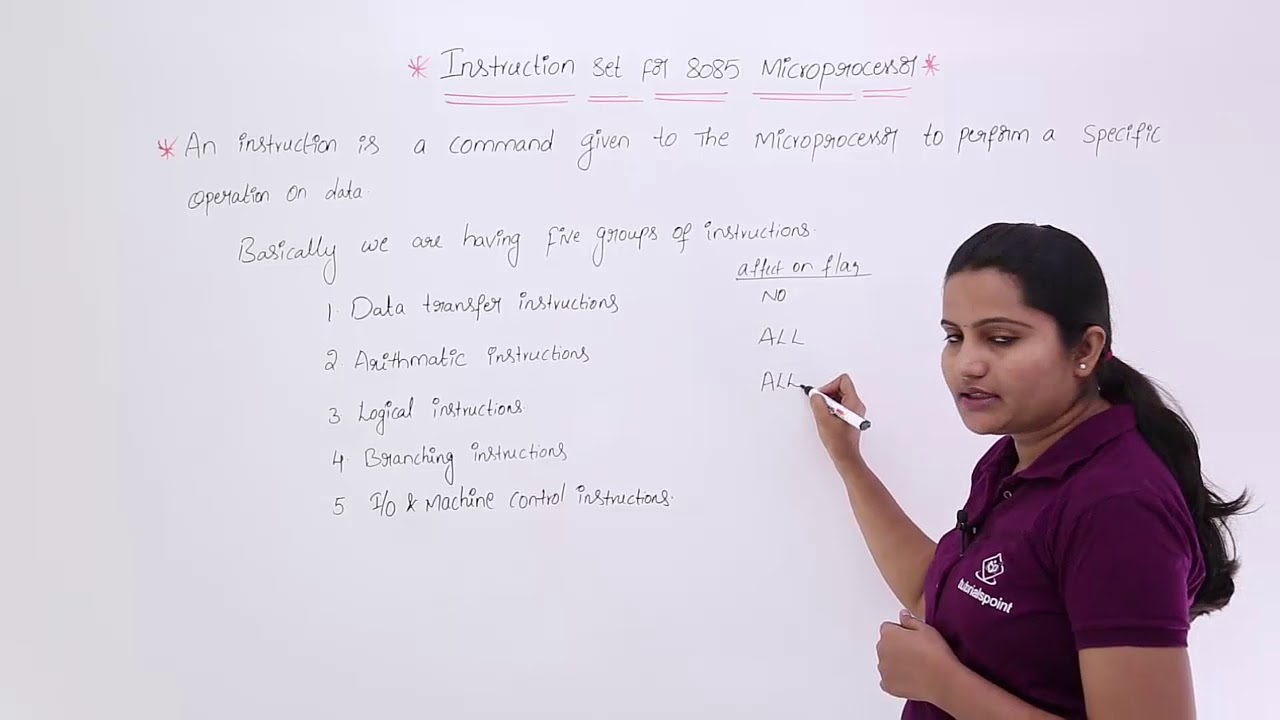 * Instruction set for 8085 Microprocessor *
* An instruction is a command given to the Microprocessor to perform a specific
operation on data.
Basically we are having five groups of instructions.
affect on flag
1. Data transfer instructions NO
2. Arithmatic instructions ALL
3 Logical instructions ALL
4. Branching instructions
5 I/O & Machine control instructions.
tutorialspoint